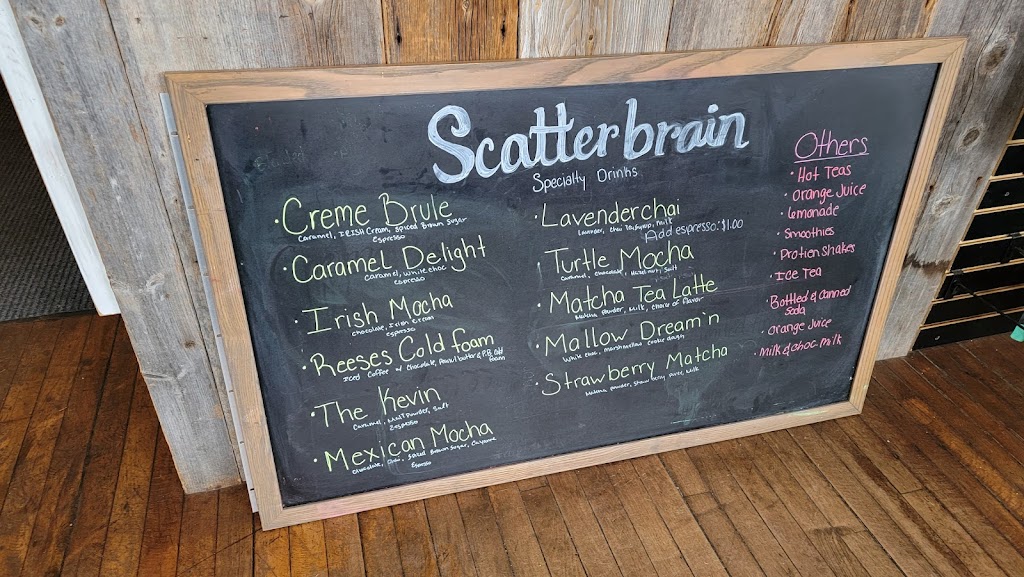 Scatterbrain
Specialty Drinks
• Creme Brule
Caramel, IRISH Cream, Spiced Brown Sugar
Espresso
• Caramel Delight
Caramel, White choc
espresso
• Irish Mocha
Chocolate, Irish Cream
espresso
• Reeses Cold foam
Iced Coffee w/ Chocolate, Peanut butter & P.B. Cold
foam
• The Kevin
Caramel, Malt Powder, Salt
Espresso
• Mexican Mocha
Chocolate, Spiced Brown Sugar, Cayenne
Espresso
• Lavenderchai
Lavender, Chai Tea Syrup, Milk
Add espresso: $1.00
• Turtle Mocha
Caramel, Chocolate, Hazelnut, Salt
• Matcha Tea Latte
Matcha Powder, Milk, Choice of flavor
• Mallow Dream'n
White choc, marshmallow cookie dough
• Strawberry Matcha
Matcha powder, Strawberry puree, Milk
Others
• Hot Teas
• Orange Juice
• Lemonade
• Smoothies
• Protien Shakes
• Ice Tea
• Bottled & Canned
Soda
• Orange Juice
• Milk & choc. Milk